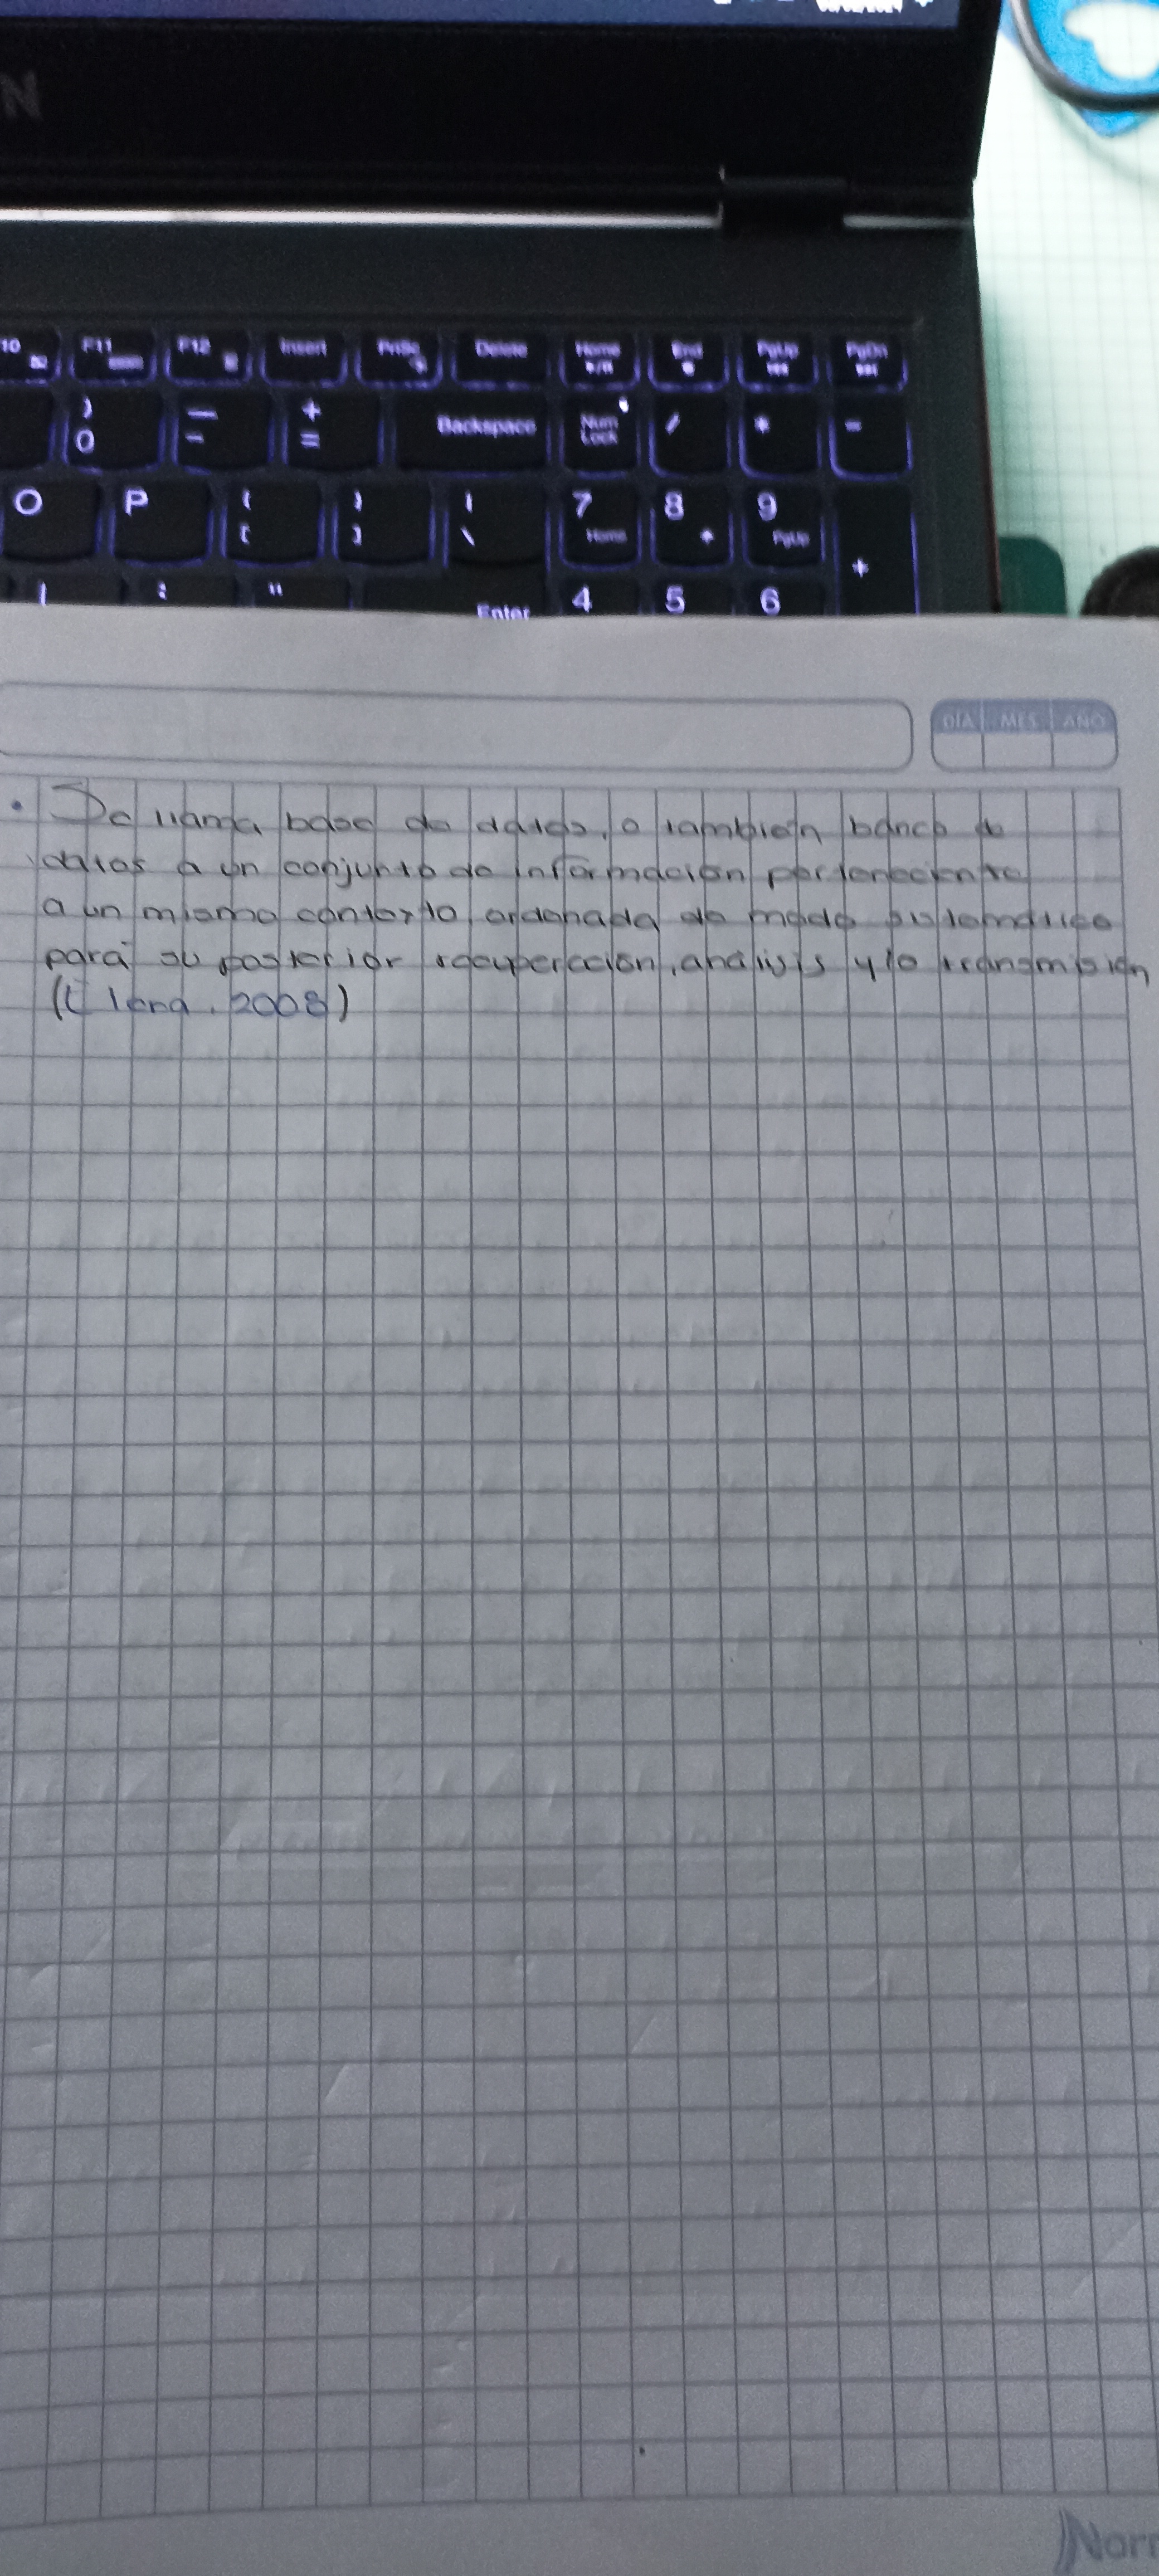 N
10 F11 F12 Insert PrtSc Delete Home End PgUp PgDn
) 0 — - + = Backspace Num Lock / * -
O P { [ } ] | \ 7 Home 8 9 PgUp +
: " Enter 4 5 6
DÍA MES AÑO
• Se llama base de datos, o también banco de
datos a un conjunto de información perteneciente
a un mismo contexto, ordenada de modo sistemático
para su posterior recuperación, analisis y/o transmisión
2008)
Norm